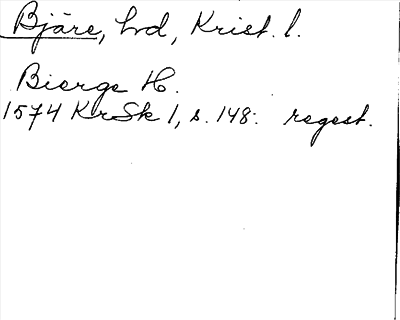 Bjäre, hd, Krist. l.
Bierge H.
1574 KrSk 1, s. 148. regest.